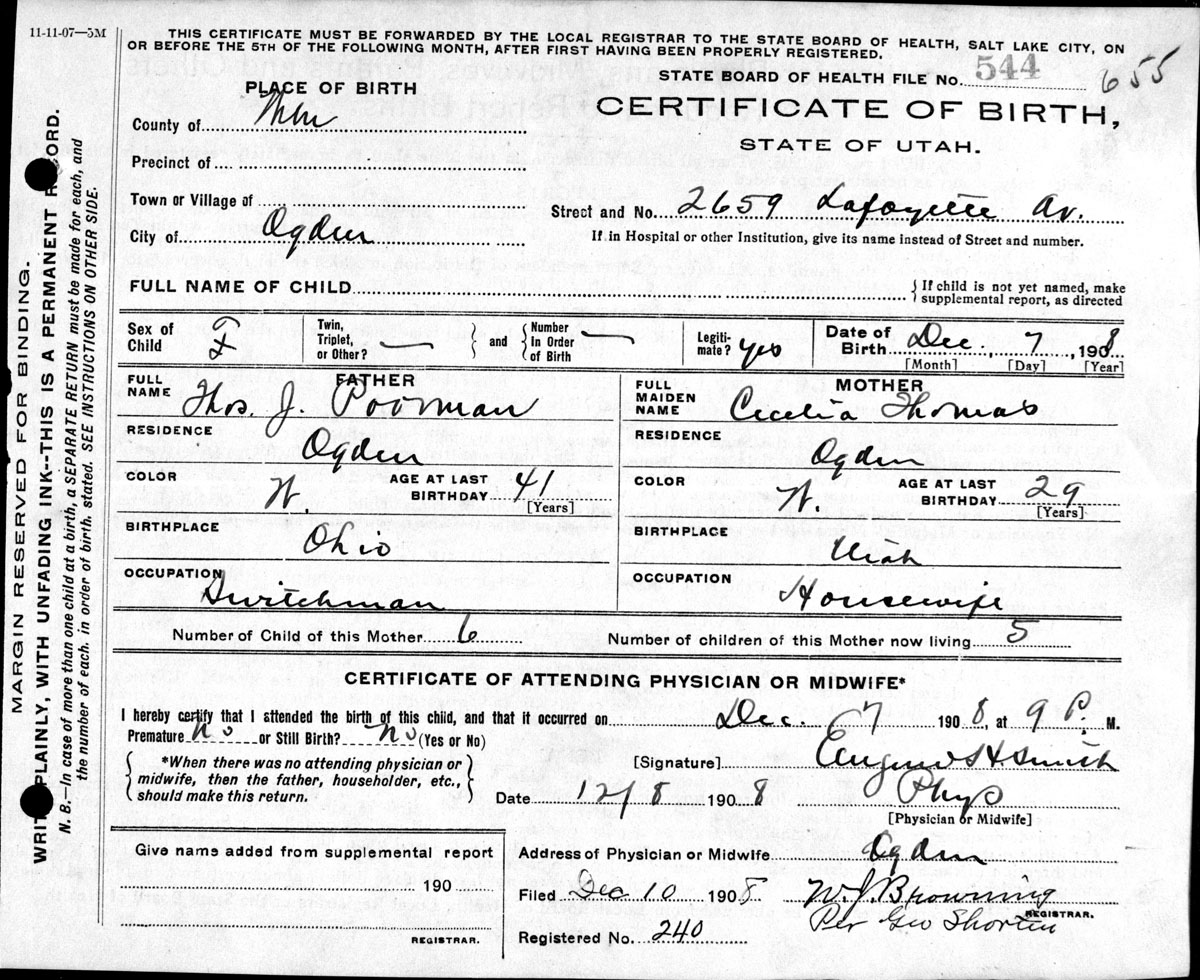 11-11-07—5M
THIS CERTIFICATE MUST BE FORWARDED BY THE LOCAL REGISTRAR TO THE STATE BOARD OF HEALTH, SALT LAKE CITY, ON
OR BEFORE THE 5TH OF THE FOLLOWING MONTH, AFTER FIRST HAVING BEEN PROPERLY REGISTERED.
STATE BOARD OF HEALTH FILE No. 544 655
PLACE OF BIRTH
CERTIFICATE OF BIRTH,
STATE OF UTAH.
County of
Precinct of
Town or Village of
Street and No. 2659 Lafayette Av.
City of Ogden
If in Hospital or other Institution, give its name instead of Street and number.
FULL NAME OF CHILD
If child is not yet named, make
supplemental report, as directed
Sex of Child F
Twin, Triplet, or Other? — and Number In Order of Birth —
Legitimate? yes
Date of Birth Dec. 7, 1908
[Month] [Day] [Year]
FATHER
FULL NAME Thos. J. Poorman
MOTHER
FULL MAIDEN NAME Cecelia Thomas
RESIDENCE Ogden
RESIDENCE Ogden
COLOR W. AGE AT LAST BIRTHDAY 41 [Years]
COLOR W. AGE AT LAST BIRTHDAY 29 [Years]
BIRTHPLACE Ohio
BIRTHPLACE Utah
OCCUPATION Switchman
OCCUPATION Housewife
Number of Child of this Mother 6 Number of children of this Mother now living 5
CERTIFICATE OF ATTENDING PHYSICIAN OR MIDWIFE*
I hereby certify that I attended the birth of this child, and that it occurred on Dec. 7 1908, at 9 P. M.
Premature No or Still Birth? No (Yes or No)
*When there was no attending physician or
midwife, then the father, householder, etc.,
should make this return.
[Signature] H Smith
Date 12/8 1908 Phys
[Physician or Midwife]
Give name added from supplemental report
190
REGISTRAR.
Address of Physician or Midwife Ogden
Filed Dec 10 1908 W. J. Browning
REGISTRAR.
Per Geo Shorten
Registered No. 240
MARGIN RESERVED FOR BINDING.
WRITE PLAINLY, WITH UNFADING INK--THIS IS A PERMANENT RECORD.
N. B.—In case of more than one child at a birth, a SEPARATE RETURN must be made for each, and
the number of each, in order of birth, stated. SEE INSTRUCTIONS ON OTHER SIDE.